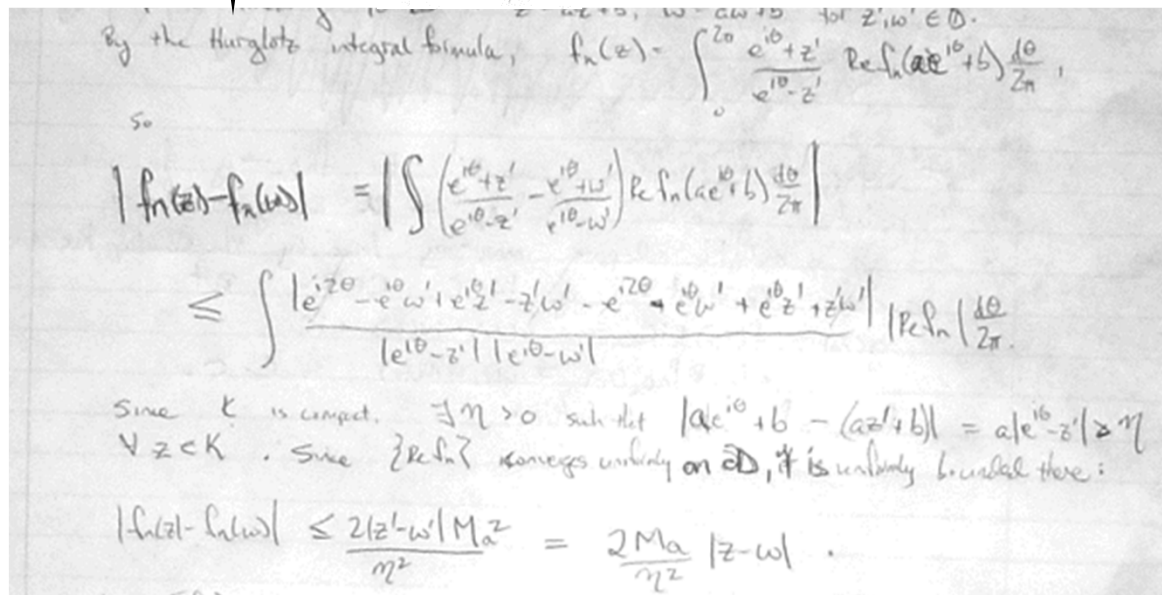 z = az'+b, w = aw'+b for z',w' ∈ D.
By the Hurglotz integral formula, fₙ(z) = ∫₀^{2π} (e^{iθ}+z')/(e^{iθ}-z') Re fₙ(ae^{iθ}+b) dθ/2π,
so
|fₙ(z)-fₙ(w)| = |∫ ((e^{iθ}+z')/(e^{iθ}-z') - (e^{iθ}+w')/(e^{iθ}-w')) Re fₙ(ae^{iθ}+b) dθ/2π|
≤ ∫ |e^{i2θ} - e^{iθ}w' + e^{iθ}z' - z'w' - e^{i2θ} - e^{iθ}w' + e^{iθ}z' + z'w'| / (|e^{iθ}-z'| |e^{iθ}-w'|) |Re fₙ| dθ/2π.
Since K is compact. ∃ η > 0 such that |ae^{iθ}+b - (az'+b)| = a|e^{iθ}-z'| ≥ η
∀ z ∈ K. Since {Re fₙ} converges uniformly on ∂D, it is uniformly bounded there:
|fₙ(z)-fₙ(w)| ≤ 2|z'-w'|Ma²/η² = 2Ma/η² |z-w|.